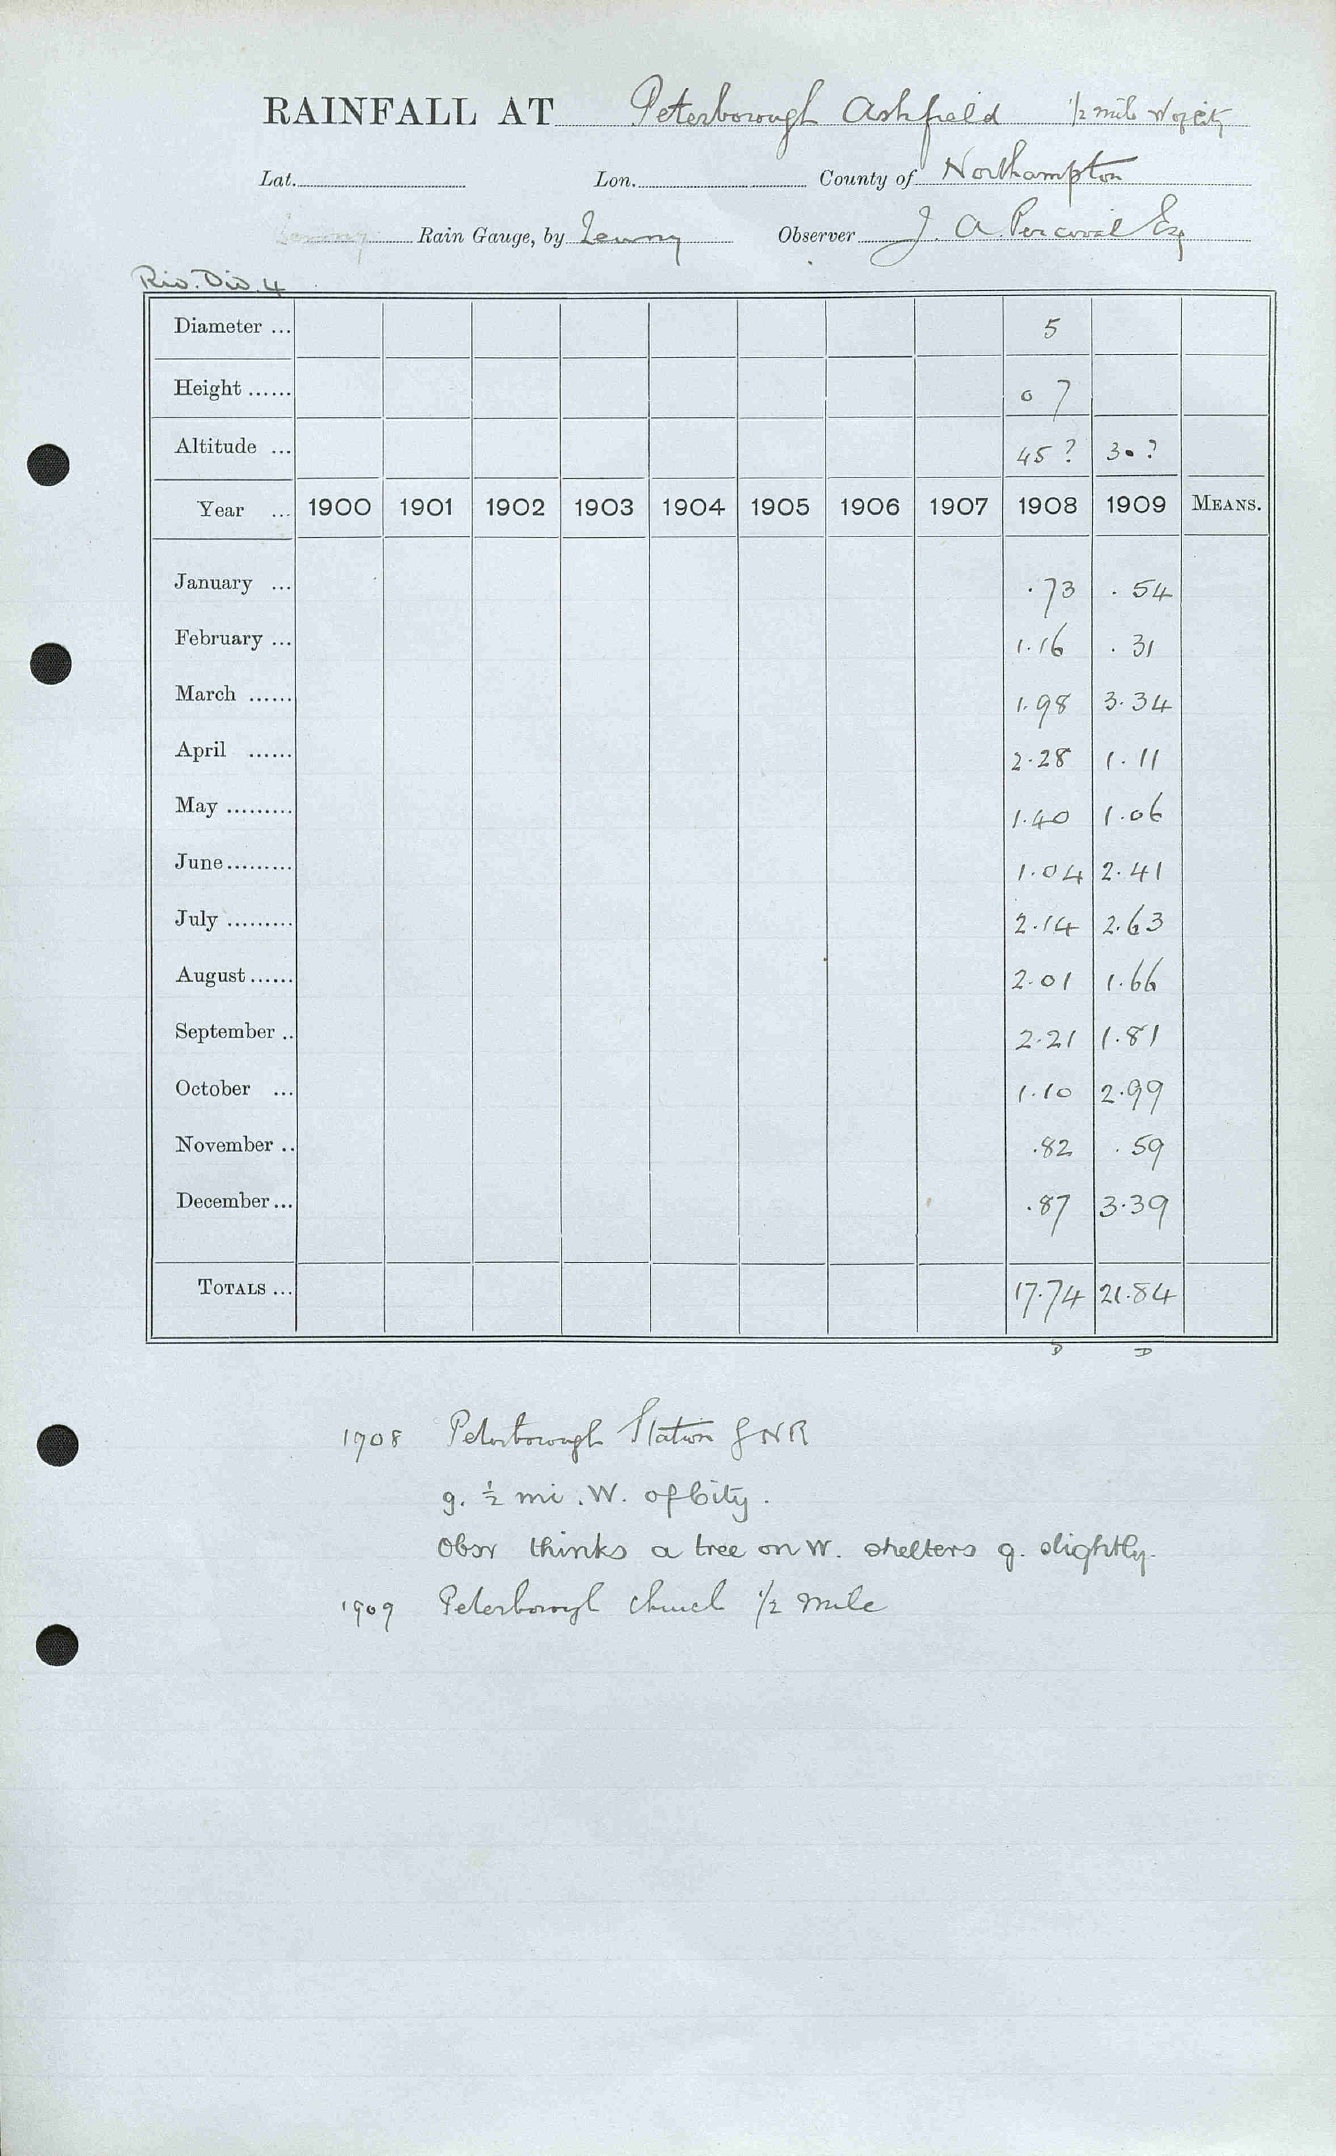 RAINFALL AT Peterborough Ashfield 1/2 mile W of City
Lat. Lon. County of Northampton
Rain Gauge, by Observer J. A. Percival Esq
Riv. Div. 4
Diameter ... 5
Height ...... 0 7
Altitude ... 45? 30?
Year ... 1900 1901 1902 1903 1904 1905 1906 1907 1908 1909 MEANS.
January ... .73 .54
February ... 1.16 .31
March ...... 1.98 3.34
April ...... 2.28 1.11
May ......... 1.40 1.06
June......... 1.04 2.41
July ......... 2.14 2.63
August...... 2.01 1.66
September .. 2.21 1.81
October ... 1.10 2.99
November .. .82 .59
December... .87 3.39
TOTALS ... 17.74 21.84
D D
1908 Peterborough Station GNR
g. 1/2 mi. W. of City.
Obsr thinks a tree on W. shelters g. slightly.
1909 Peterborough Church 1/2 mile